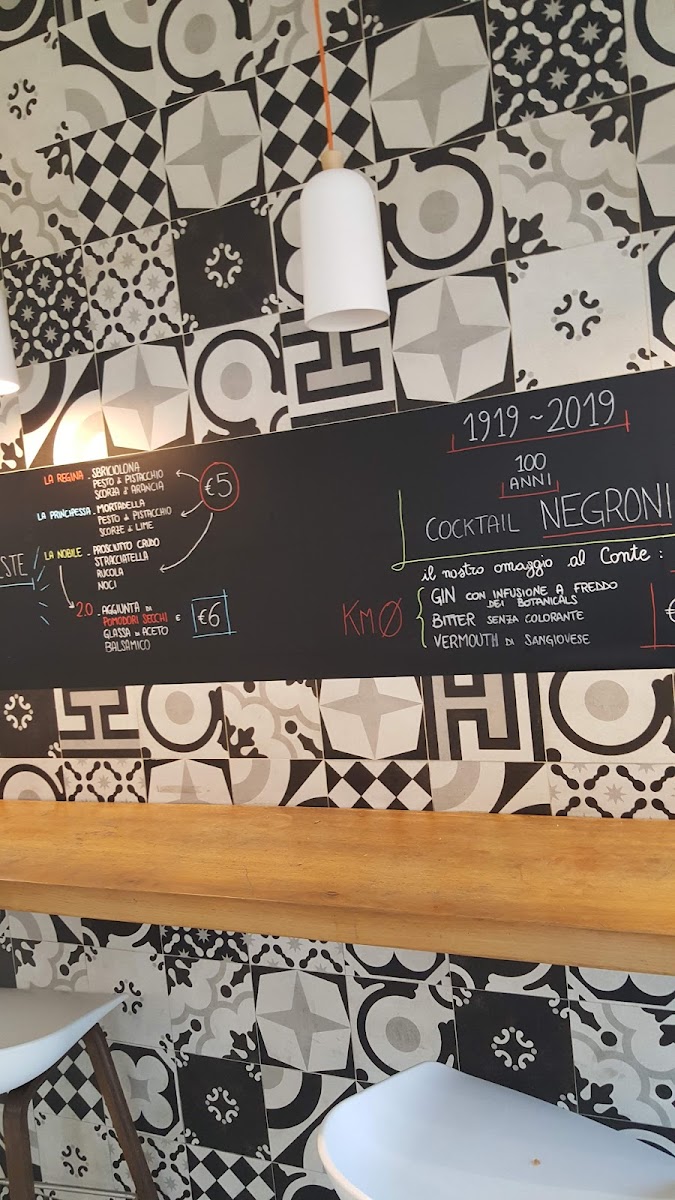 LA REGINA - SBRICIOLONA
PESTO di PISTACCHIO
SCORZA di ARANCIA
€5
LA PRINCIPESSA - MORTADELLA
PESTO di PISTACCHIO
SCORZE di LIME
LA NOBILE - PROSCIUTTO CRUDO
STRACCIATELLA
RUCOLA
NOCI
2.0 - AGGIUNTA DI
POMODORI SECCHI E
GLASSA DI ACETO
BALSAMICO
€6
1919 ~ 2019
100
ANNI
COCKTAIL NEGRONI
il nostro omaggio al Conte :
KM0
GIN CON INFUSIONE A FREDDO
DEI BOTANICALS
BITTER SENZA COLORANTE
VERMOUTH DI SANGIOVESE
€